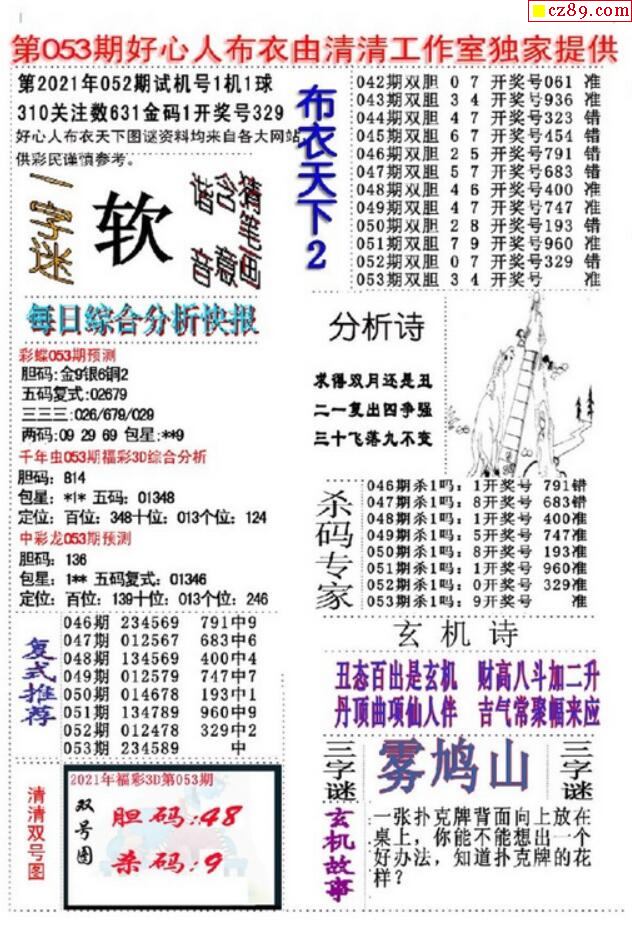 cz89.com
第053期好心人布衣由清清工作室独家提供
第2021年052期试机号1机1球
310关注数631金码1开奖号329
好心人布衣天下图谜资料均来自各大网站
供彩民谨慎参考。
一字迷
软
猜笔画
含意
谐音
每日综合分析快报
彩蝶053期预测
胆码:金9银6铜2
五码复式:02679
三三三:026/679/029
两码:09 29 69 包星:**9
千年虫053期福彩3D综合分析
胆码：814
包星：*1* 五码：01348
定位：百位：348十位：013个位：124
中彩龙053期预测
胆码：136
包星：1** 五码复式：01346
定位：百位：139十位：013个位：246
复式推荐
046期 234569 791中9
047期 012567 683中6
048期 134569 400中4
049期 012579 747中7
050期 014678 193中1
051期 134789 960中9
052期 012478 329中2
053期 234589 中
清清双号图
2021年福彩3D第053期
双号图
胆码:48
杀码:9
布衣天下2
042期双胆 0 7 开奖号061 准
043期双胆 3 4 开奖号936 准
044期双胆 4 7 开奖号323 错
045期双胆 6 7 开奖号454 错
046期双胆 2 5 开奖号791 错
047期双胆 5 7 开奖号683 错
048期双胆 4 6 开奖号400 准
049期双胆 4 7 开奖号747 准
050期双胆 2 8 开奖号193 错
051期双胆 7 9 开奖号960 准
052期双胆 0 7 开奖号329 错
053期双胆 3 4 开奖号 准
分析诗
求得双月还是丑
二一复出四争强
三十飞落九不变
杀码专家
046期杀1吗：1开奖号 791错
047期杀1吗：8开奖号 683错
048期杀1吗：1开奖号 400准
049期杀1吗：5开奖号 747准
050期杀1吗：8开奖号 193准
051期杀1吗：1开奖号 960准
052期杀1吗：0开奖号 329准
053期杀1吗：9开奖号 准
玄机诗
丑态百出是玄机 财高八斗加二升
丹顶曲项仙人伴 吉气常聚幅来应
三字谜
雾鸠山
三字谜
玄机故事
一张扑克牌背面向上放在
桌上，你能不能想出一个
好办法，知道扑克牌的花
样？